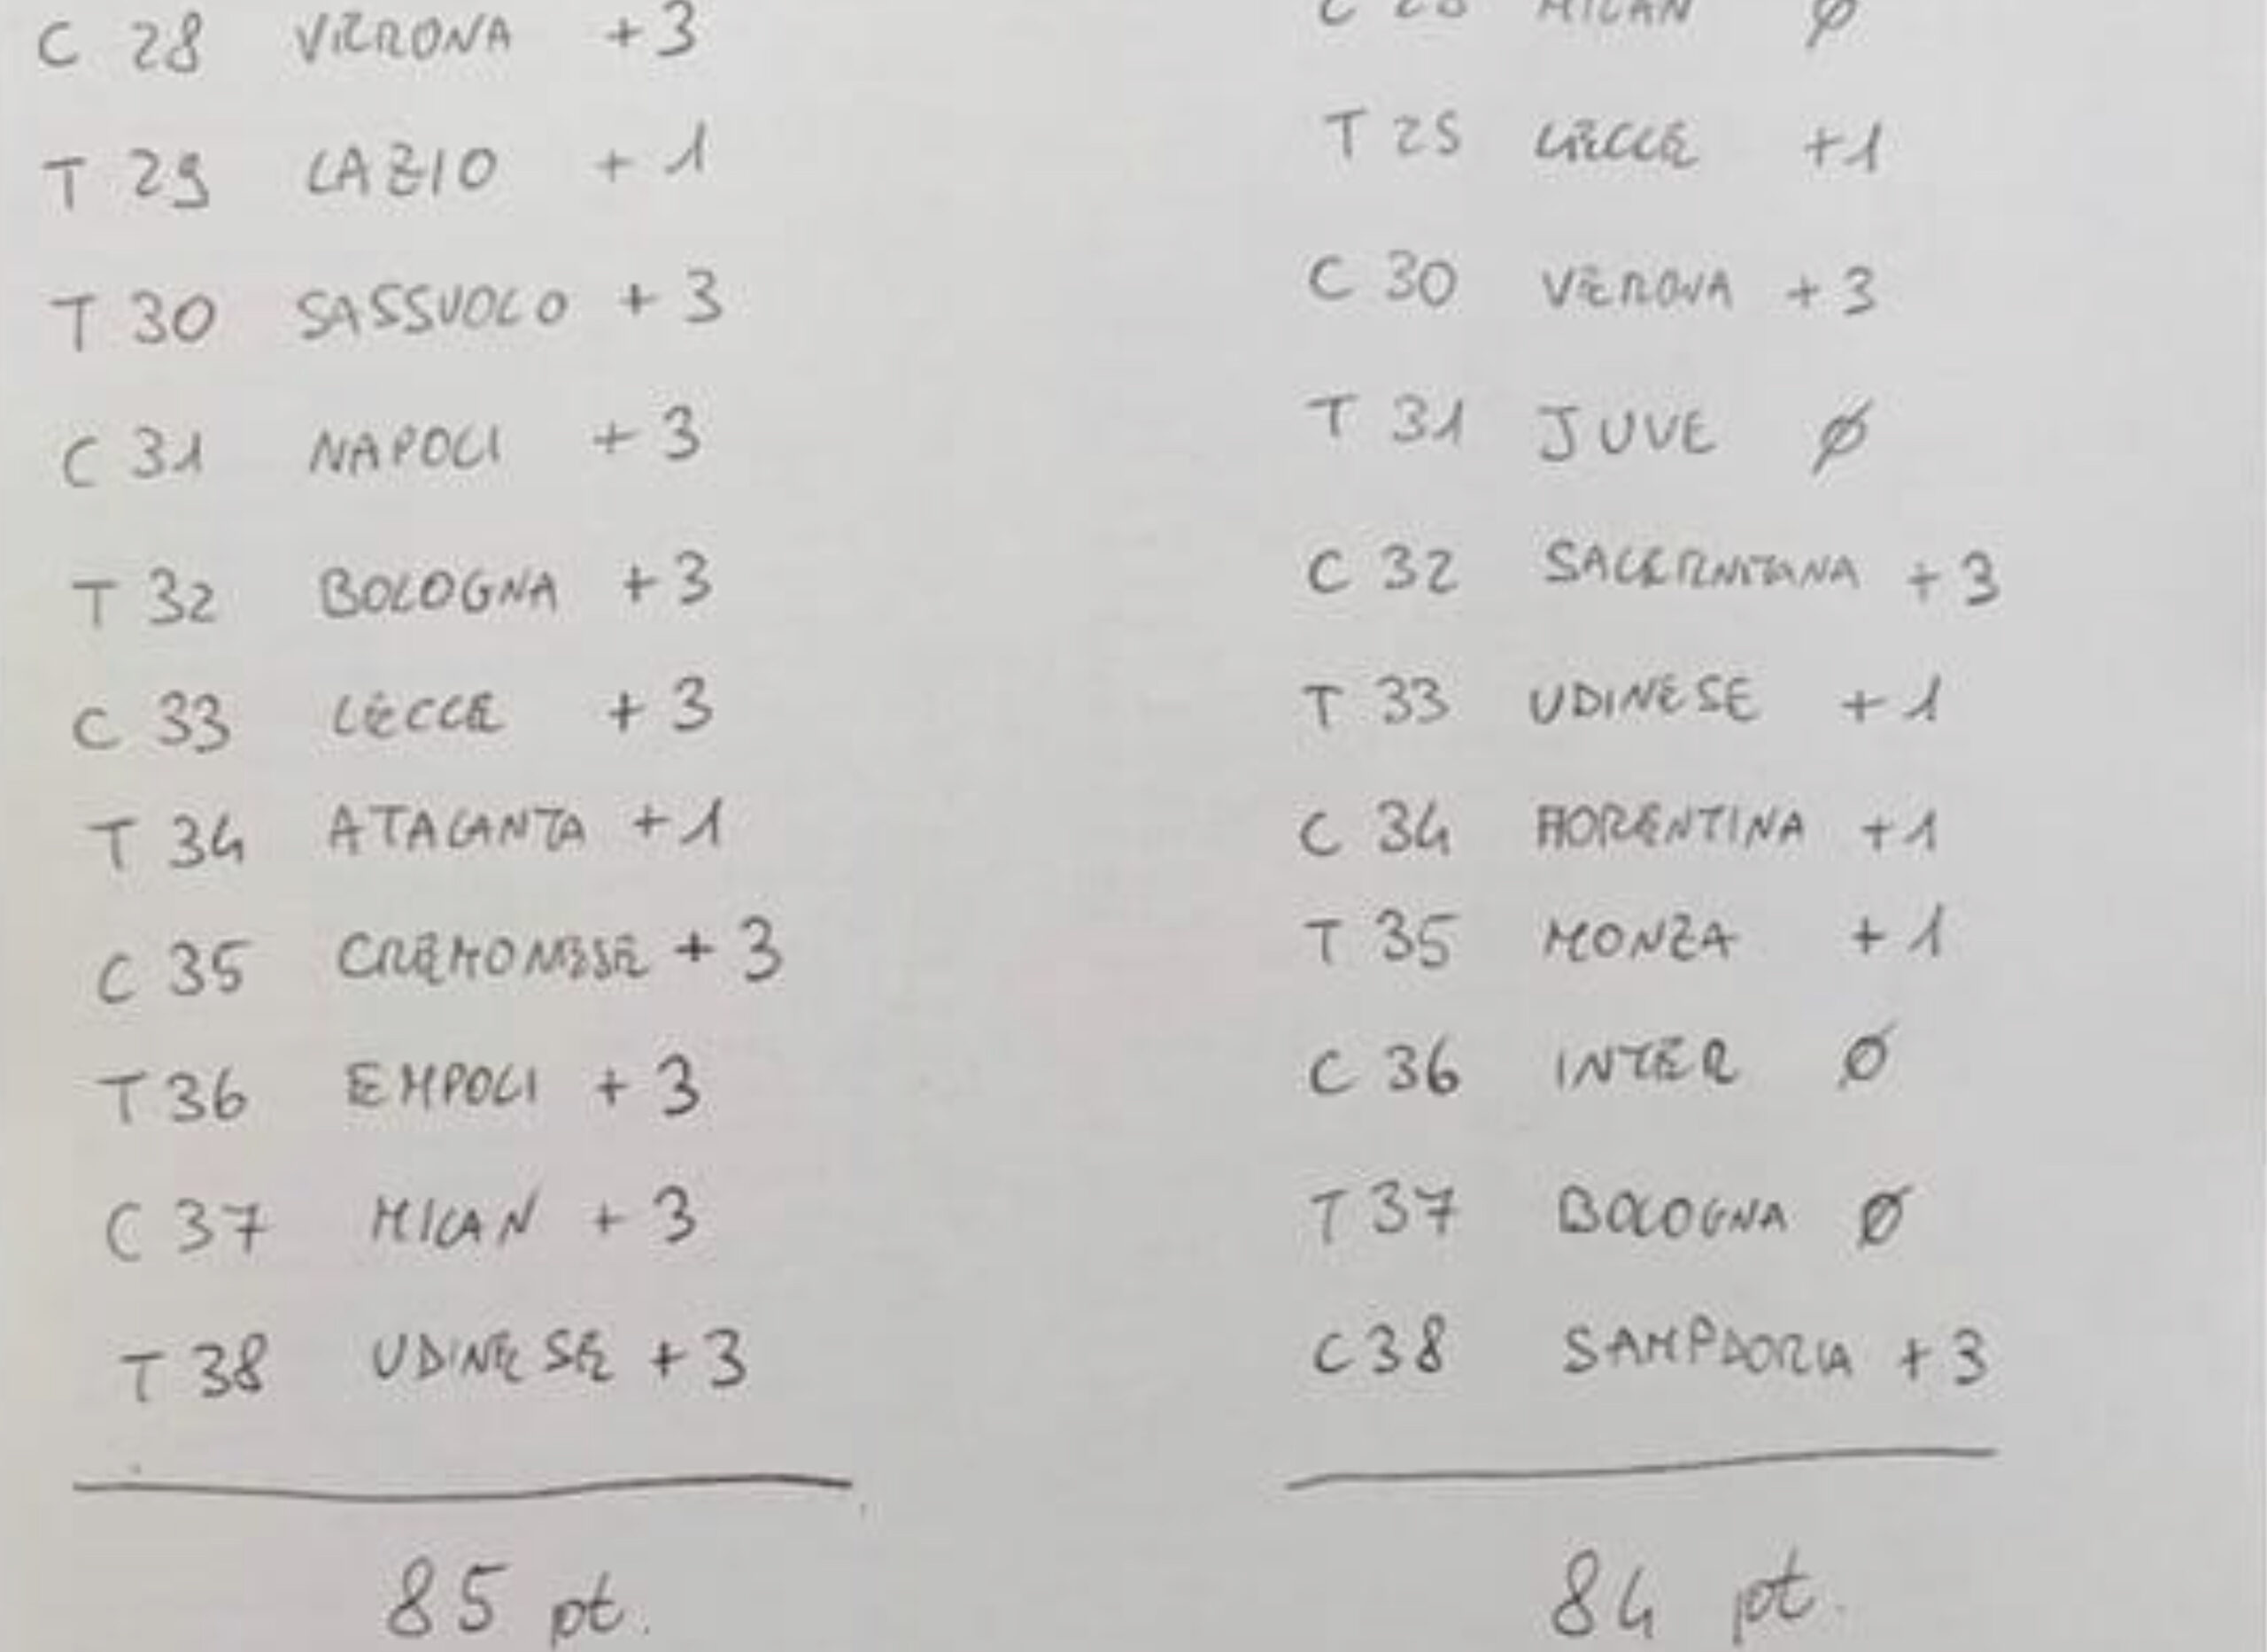 C 28 VERONA +3
T 29 LAZIO +1
T 30 SASSUOLO +3
C 31 NAPOLI +3
T 32 BOLOGNA +3
C 33 LECCE +3
T 34 ATALANTA +1
C 35 CREMONESE +3
T 36 EMPOLI +3
C 37 MILAN +3
T 38 UDINESE +3
85 pt.
C 28 MILAN Ø
T 29 LECCE +1
C 30 VERONA +3
T 31 JUVE Ø
C 32 SALERNITANA +3
T 33 UDINESE +1
C 34 FIORENTINA +1
T 35 MONZA +1
C 36 INTER Ø
T 37 BOLOGNA Ø
C 38 SAMPDORIA +3
84 pt.